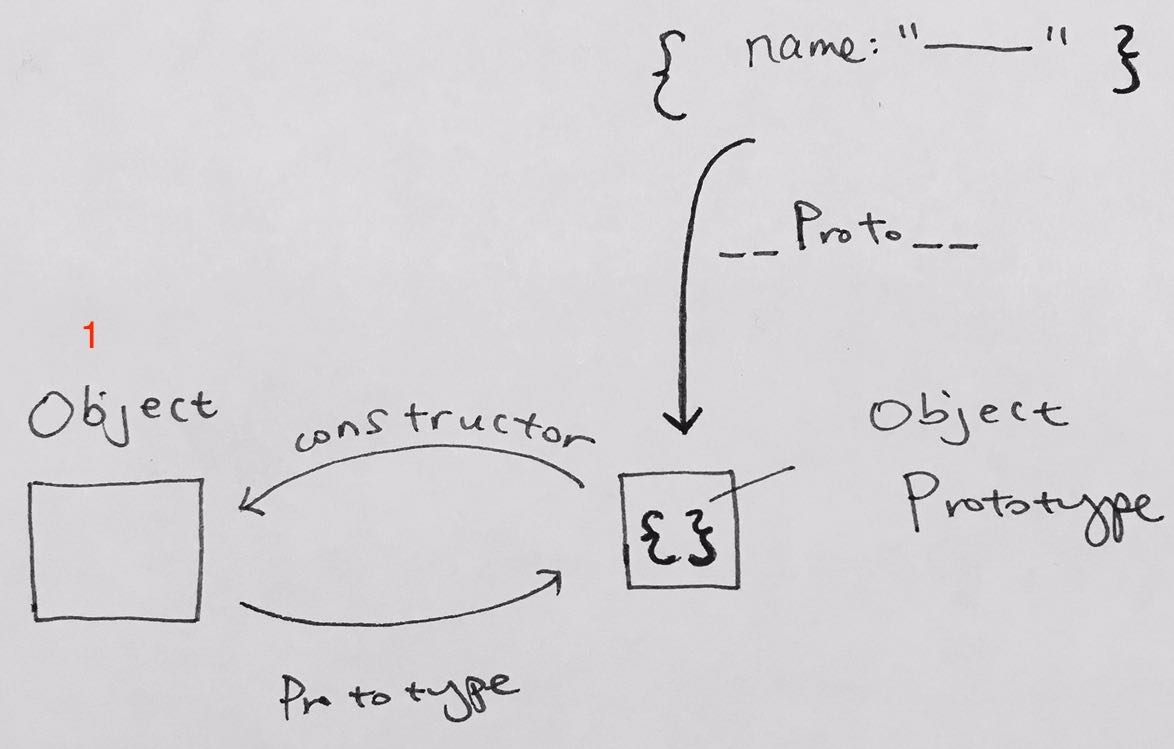 { name: "——" }
__Proto__
1
Object
constructor
Object
Prototype
{}
Prototype